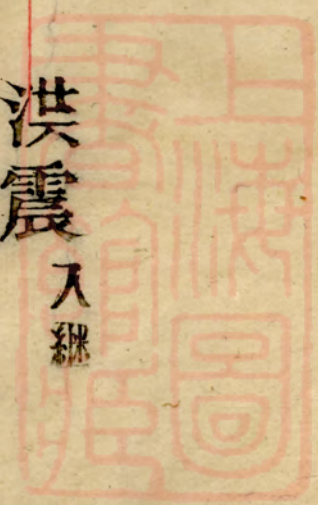 洪震入継
上海圖
書館藏